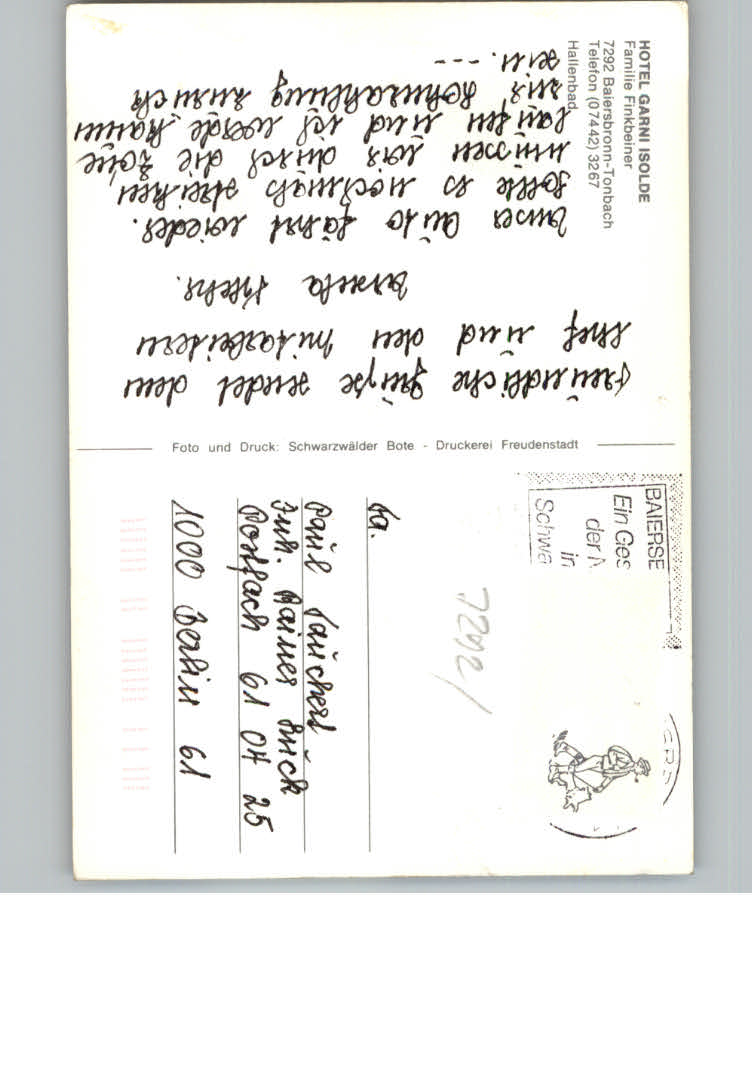 HOTEL GARNI ISOLDE
Familie Finkbeiner
7292 Baiersbronn-Tonbach
Telefon (07442) 3267
Hallenbad
Freundliche Grüße sendet dem
Chef und den Mitarbeitern
Ursula
Unser Auto fährt wieder.
Sollte es nochmals streiken
müssen wir durch die Zone
laufen und ich werde kaum
zur Lohnzahlung zurück
sein. ---
Foto und Druck: Schwarzwälder Bote - Druckerei Freudenstadt
BAIERSB
Ein Ges
der N
in
Schwa
7292/
Fa.
Paul
Inh. Rainer
Postfach 61 04 25
1000 Berlin 61